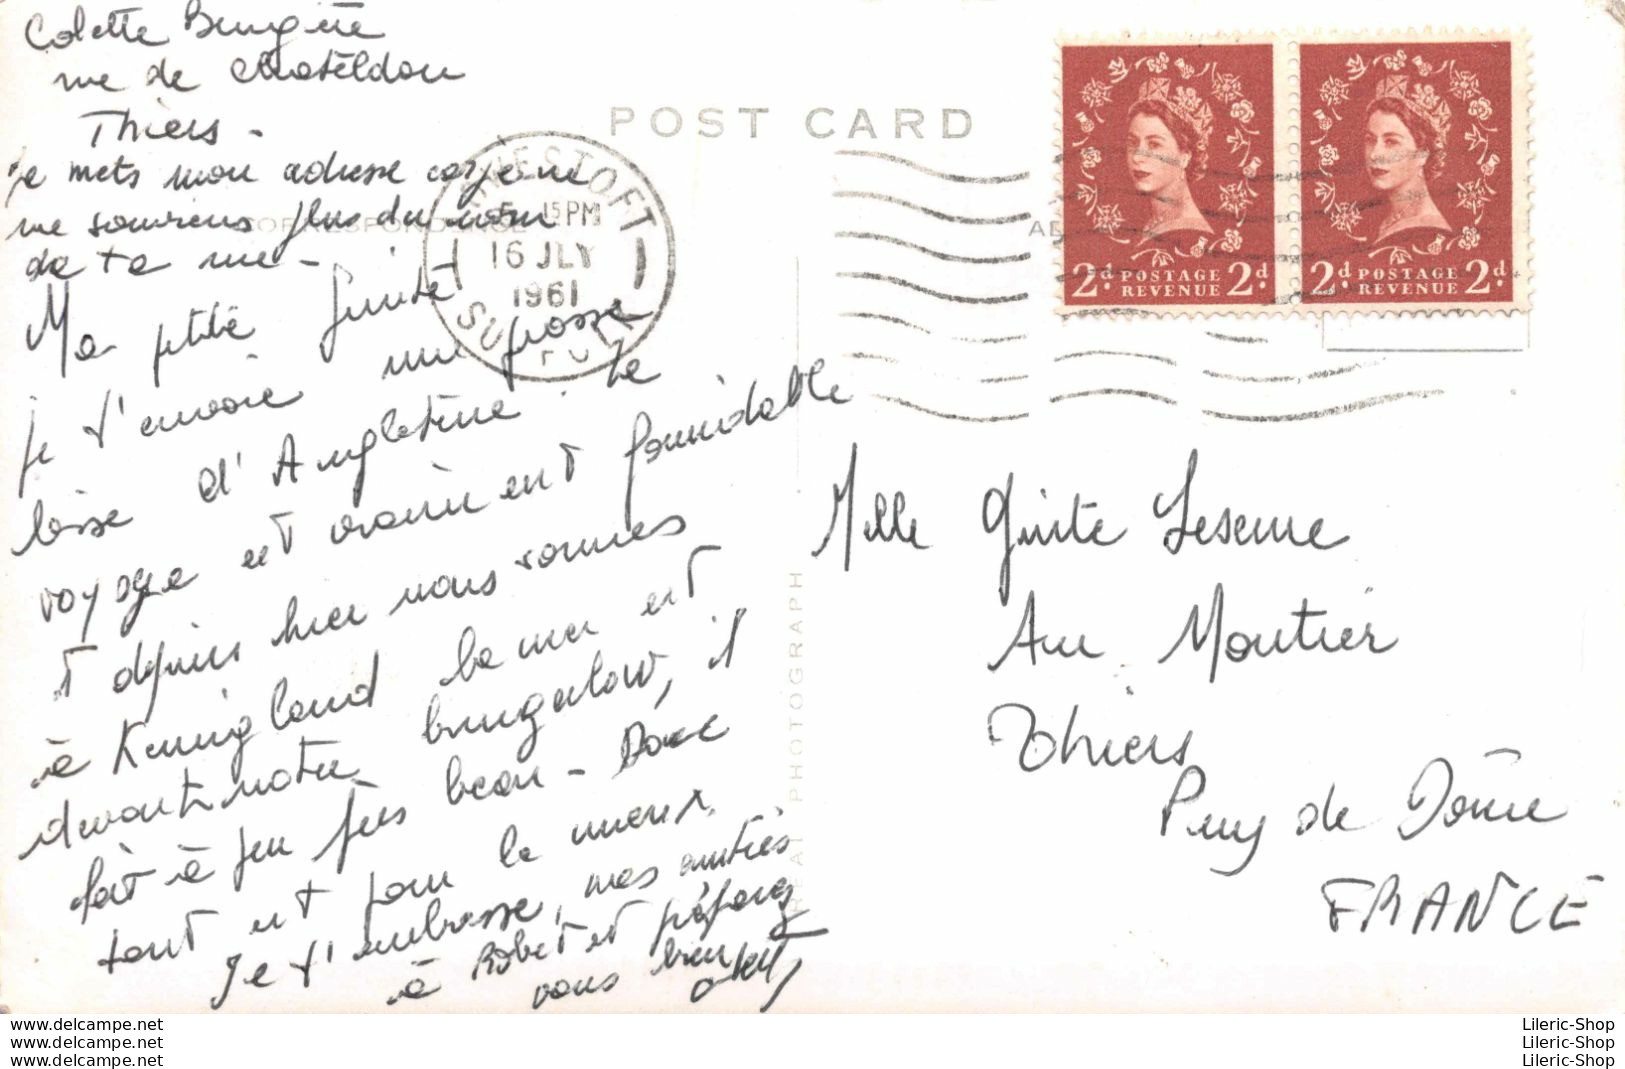 Colette
rue de Chateldon
Thiers -
Je mets mon adresse car je ne
me souviens plus du nom
de ta rue -
Ma petite Guite
je t'envoie une grosse
bise d'Angleterre. Le
voyage est vraiment formidable
et depuis hier nous sommes
à Kessingland la mer est
devant notre bungalow, il
fait à peu près beau - Donc
tout est pour le mieux.
Je t'embrasse, mes amitiés
à Robert et
vous bien
POST CARD
CORRESPONDENCE
LOWESTOFT
5.15PM
16 JLY
1961
SUFFOLK
2d POSTAGE REVENUE 2d
2d POSTAGE REVENUE 2d
REAL PHOTOGRAPH
Melle Guite
Au Moutier
Thiers
Puy de Dôme
FRANCE
www.delcampe.net
www.delcampe.net
www.delcampe.net
Lileric-Shop
Lileric-Shop
Lileric-Shop